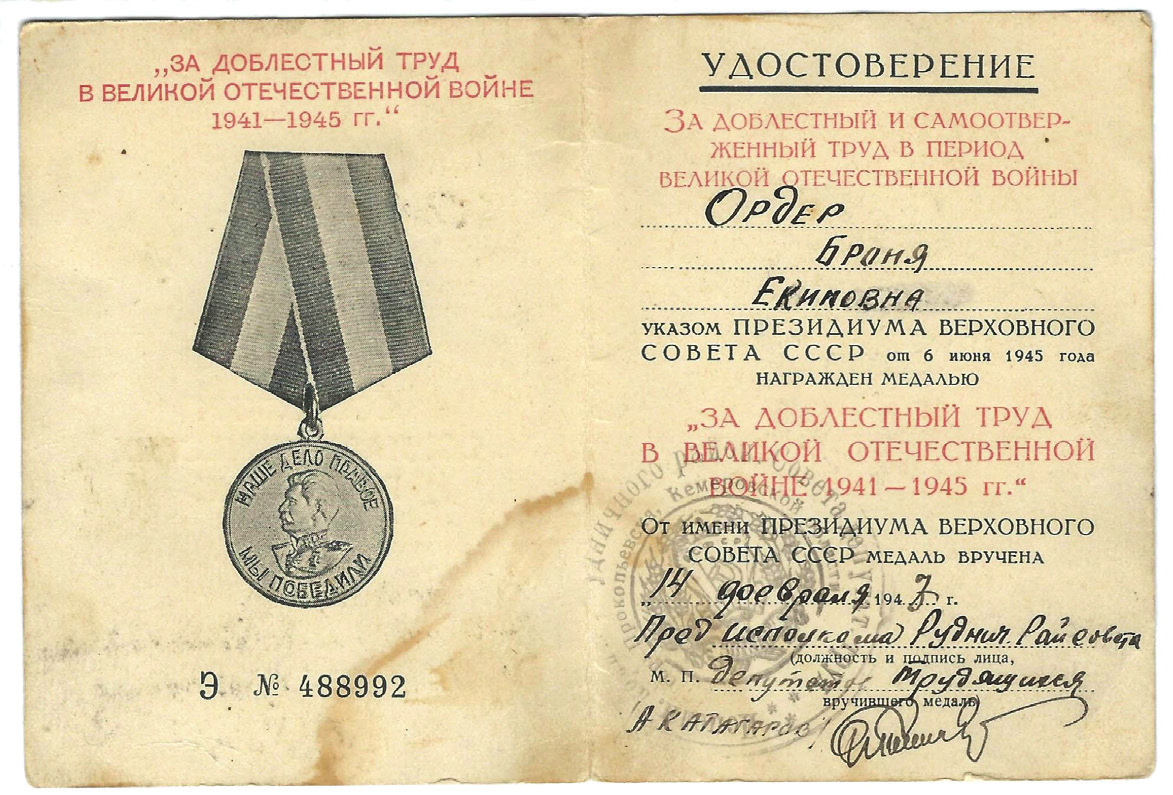 „ЗА ДОБЛЕСТНЫЙ ТРУД
В ВЕЛИКОЙ ОТЕЧЕСТВЕННОЙ ВОЙНЕ
1941—1945 гг.“
НАШЕ ДЕЛО ПРАВОЕ
МЫ ПОБЕДИЛИ
Э № 488992
УДОСТОВЕРЕНИЕ
ЗА ДОБЛЕСТНЫЙ И САМООТВЕР-
ЖЕННЫЙ ТРУД В ПЕРИОД
ВЕЛИКОЙ ОТЕЧЕСТВЕННОЙ ВОЙНЫ
Ордер
Броня
Екиповна
УКАЗОМ ПРЕЗИДИУМА ВЕРХОВНОГО
СОВЕТА СССР от 6 июня 1945 года
НАГРАЖДЕН МЕДАЛЬЮ
„ЗА ДОБЛЕСТНЫЙ ТРУД
В ВЕЛИКОЙ ОТЕЧЕСТВЕННОЙ
ВОЙНЕ 1941—1945 гг.“
ОТ ИМЕНИ ПРЕЗИДИУМА ВЕРХОВНОГО
СОВЕТА СССР МЕДАЛЬ ВРУЧЕНА
„14 февраля 1947 г.
Пред исполкома Руднич. Райсовета
(должность и подпись лица,
М. П. депутатов Трудящихся
вручившего медаль)